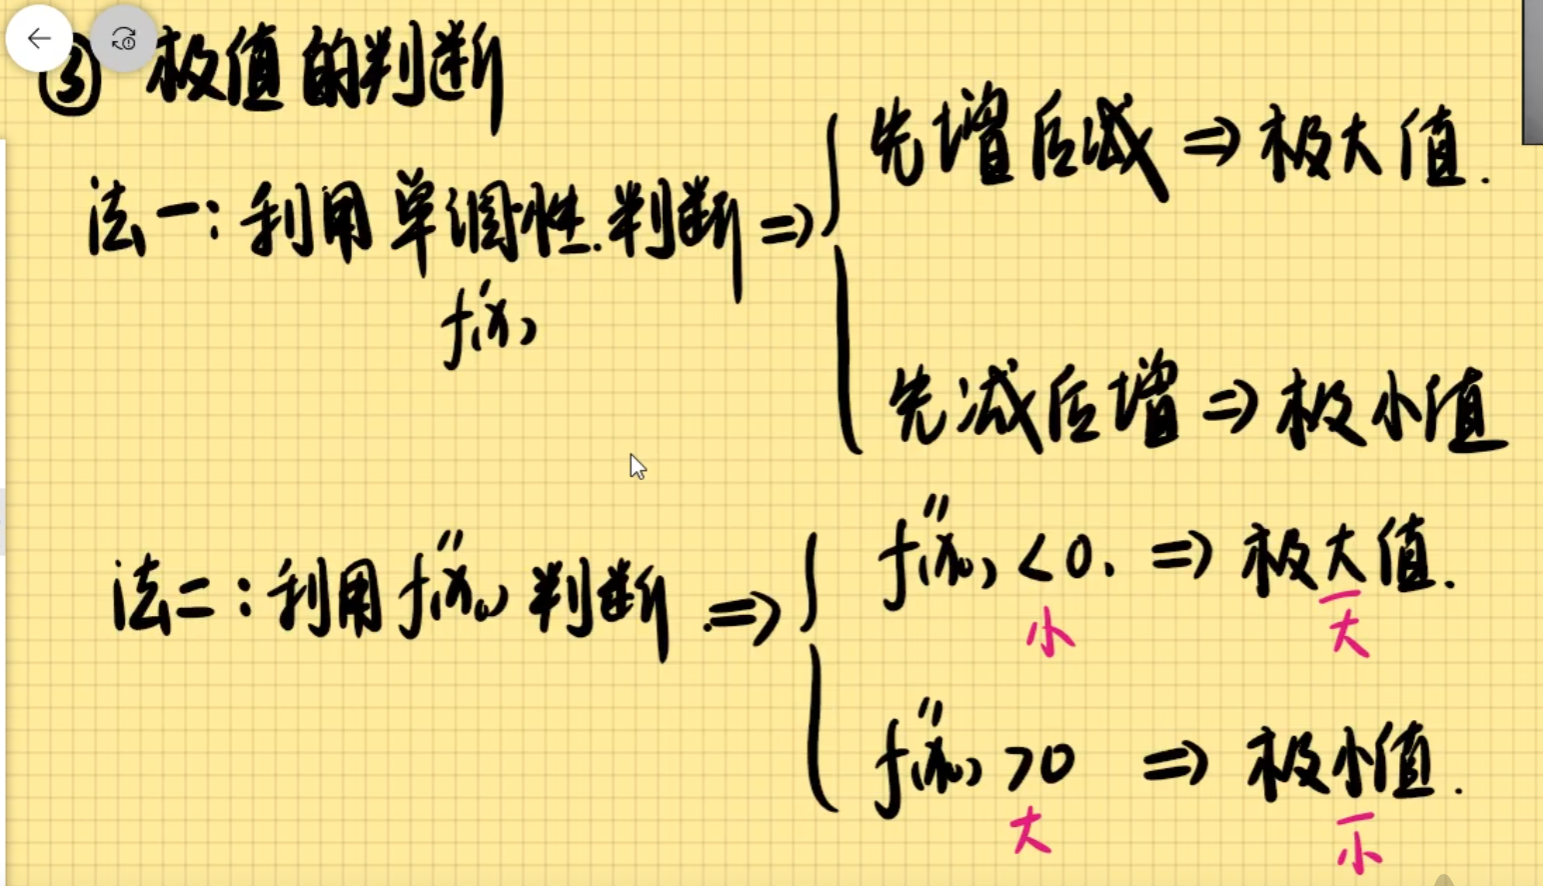 ③ 极值的判断
法一：利用单调性.判断 ⇒
f'(x)
先增后减 ⇒ 极大值.
先减后增 ⇒ 极小值
法二：利用f''(x₀)判断 ⇒
f''(x₀)<0. ⇒ 极大值.
小 大
f''(x₀)>0 ⇒ 极小值.
大 小